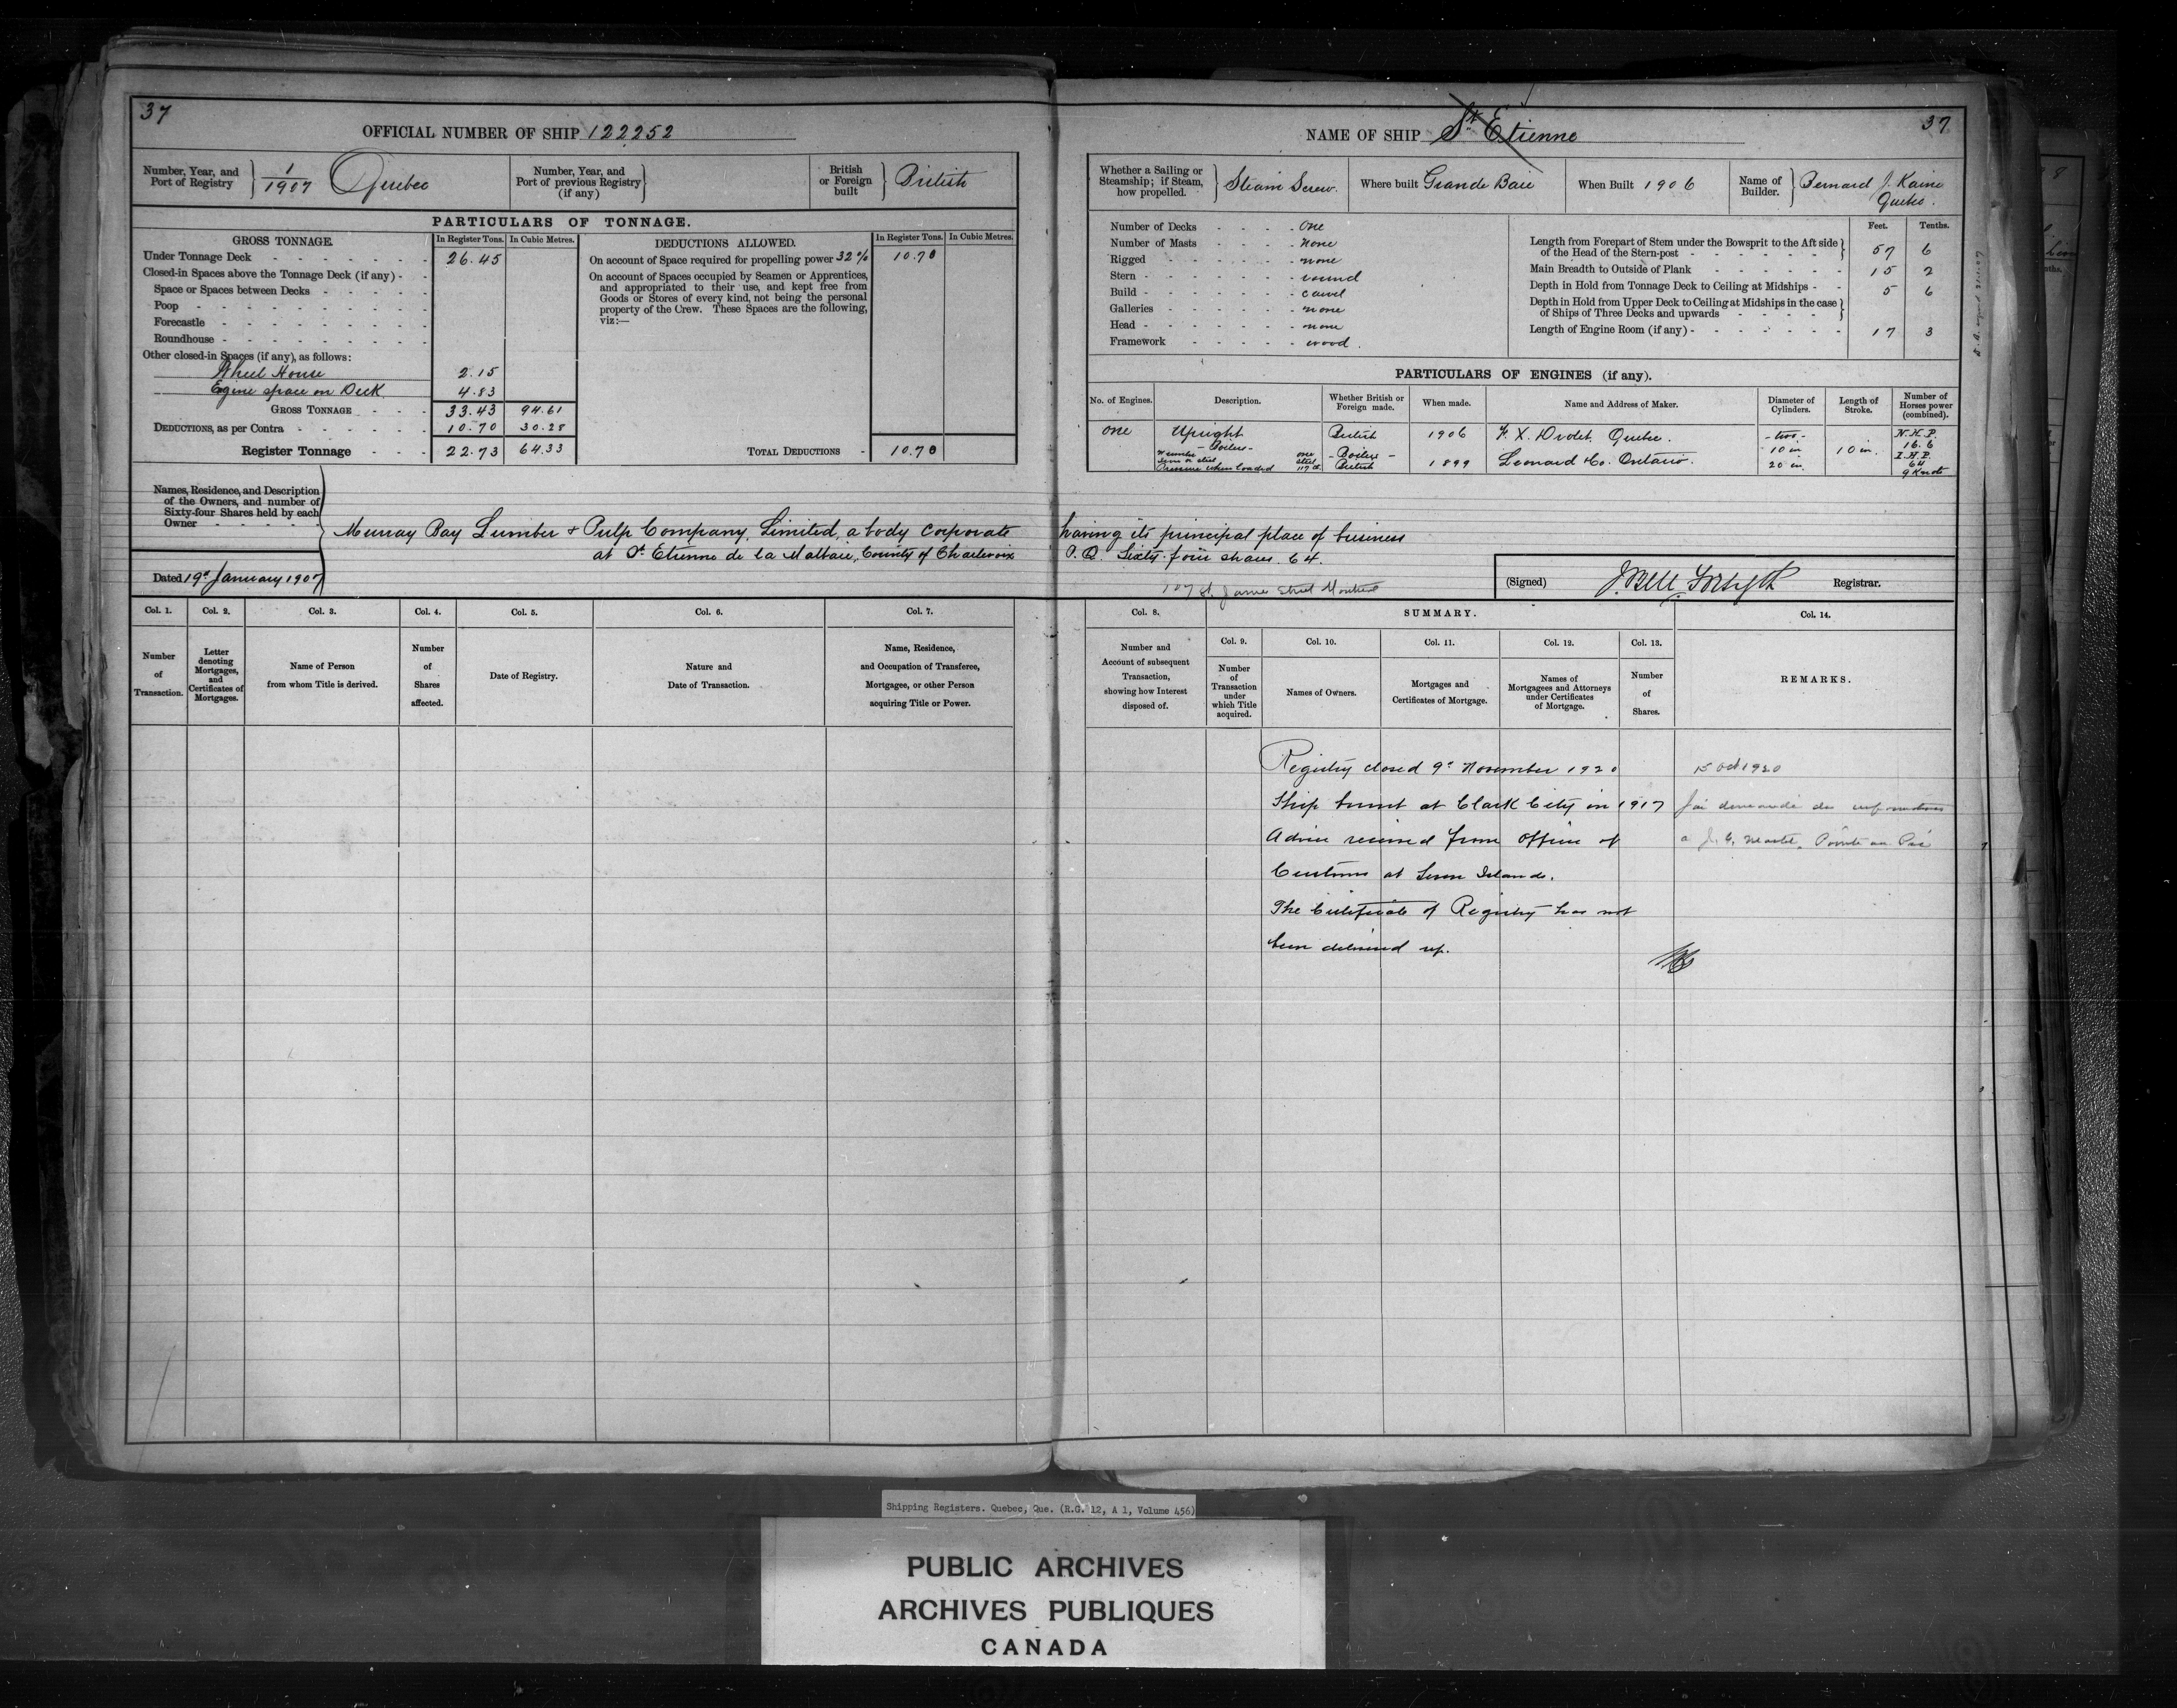 37
OFFICIAL NUMBER OF SHIP 122252
Number, Year, and Port of Registry 1/1907 Quebec
Number, Year, and Port of previous Registry (if any)
British or Foreign built British
PARTICULARS OF TONNAGE.
GROSS TONNAGE. In Register Tons. In Cubic Metres.
Under Tonnage Deck 26.45
Closed-in Spaces above the Tonnage Deck (if any)
Space or Spaces between Decks
Poop
Forecastle
Roundhouse
Other closed-in Spaces (if any), as follows:
Wheel House 2.15
Engine space on Deck 4.83
GROSS TONNAGE 33.43 94.61
DEDUCTIONS, as per Contra 10.70 30.28
Register Tonnage 22.73 64.33
DEDUCTIONS ALLOWED. In Register Tons. In Cubic Metres.
On account of Space required for propelling power 32% 10.70
On account of Spaces occupied by Seamen or Apprentices,
and appropriated to their use, and kept free from
Goods or Stores of every kind, not being the personal
property of the Crew. These Spaces are the following,
viz:—
TOTAL DEDUCTIONS 10.70
Names, Residence, and Description
of the Owners, and number of
Sixty-four Shares held by each
Owner
Dated 19th January 1907
NAME OF SHIP St Etienne
37
Whether a Sailing or Steamship; if Steam, how propelled. Steam Screw.
Where built Grande Baie
When Built 1906
Name of Builder. Bernard J. Kaine Quebec.
Number of Decks One
Number of Masts none
Rigged none
Stern round
Build carvel
Galleries none
Head none
Framework wood.
Feet. Tenths.
Length from Forepart of Stem under the Bowsprit to the Aft side
of the Head of the Stern-post 57 6
Main Breadth to Outside of Plank 15 2
Depth in Hold from Tonnage Deck to Ceiling at Midships 5 6
Depth in Hold from Upper Deck to Ceiling at Midships in the case
of Ships of Three Decks and upwards
Length of Engine Room (if any) 17 3
PARTICULARS OF ENGINES (if any).
No. of Engines. Description. Whether British or Foreign made. When made. Name and Address of Maker. Diameter of Cylinders. Length of Stroke. Number of Horses power (combined).
One Upright British 1906 F. X. Drolet, Quebec. - two - 10 in 20 in. 10 in. N.H.P. 16.6 I.H.P. 64 9 Knots
- Boilers - - Boilers -
Number one
Iron or steel steel
Pressure when loaded 117 lb British 1899 Leonard & Co. Ontario.
Murray Bay Lumber & Pulp Company, Limited, a body corporate having its principal place of business
at St Etienne de la Malbaie, County of Charlevoix P.Q. Sixty-four shares. 64.
107 St. James Street Montreal
(Signed) J. Bell Forsyth Registrar.
Col. 1. Col. 2. Col. 3. Col. 4. Col. 5. Col. 6. Col. 7.
Number of Transaction.
Letter denoting Mortgages, and Certificates of Mortgages.
Name of Person from whom Title is derived.
Number of Shares affected.
Date of Registry.
Nature and Date of Transaction.
Name, Residence, and Occupation of Transferee, Mortgagee, or other Person acquiring Title or Power.
Col. 8. SUMMARY. Col. 14.
Number and Account of subsequent Transaction, showing how Interest disposed of.
Col. 9. Col. 10. Col. 11. Col. 12. Col. 13.
Number of Transaction under which Title acquired.
Names of Owners.
Mortgages and Certificates of Mortgage.
Names of Mortgagees and Attorneys under Certificates of Mortgage.
Number of Shares.
REMARKS.
Registry closed 9th November 1920
Ship burnt at Clark City in 1917
Advice received from Office of
Customs at Seven Islands.
The Certificate of Registry has not
been delivered up.
15 Oct 1920
J'ai demandé des informations
a J. Pointe au Pic
Shipping Registers. Quebec, Que. (R.G. 12, A 1, Volume 456)
PUBLIC ARCHIVES
ARCHIVES PUBLIQUES
CANADA